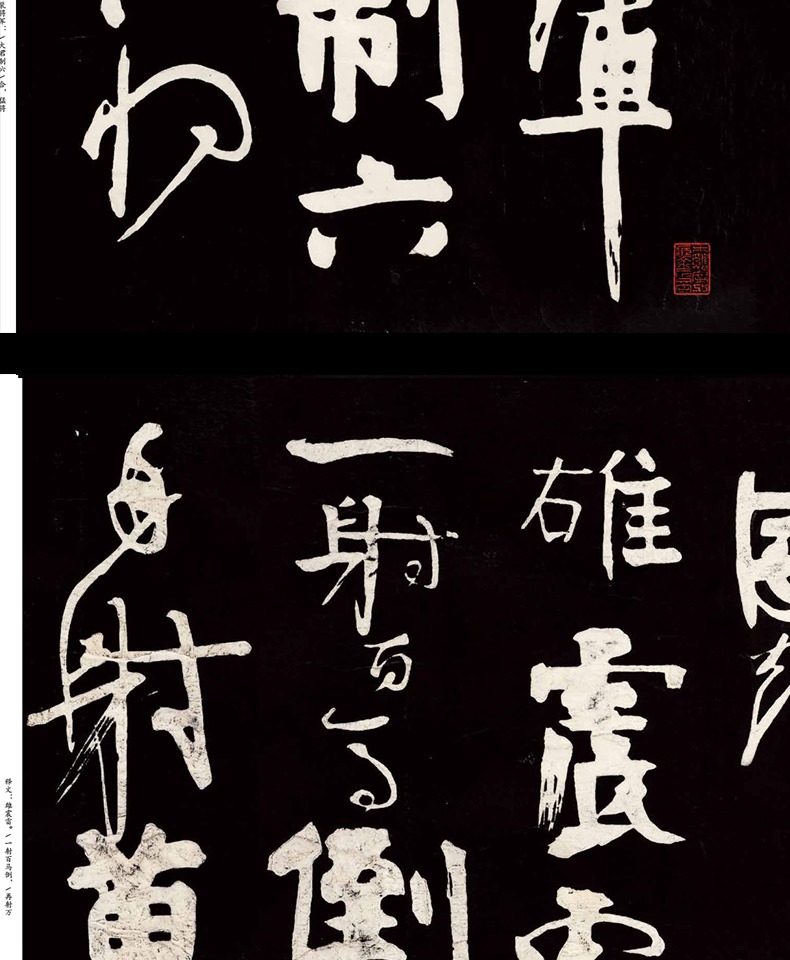 軍
制六
将军：/大君制六/合，猛将
雄震雷
一射百馬倒
再射萬
释文：雄震雷。/一射百马倒，/再射万